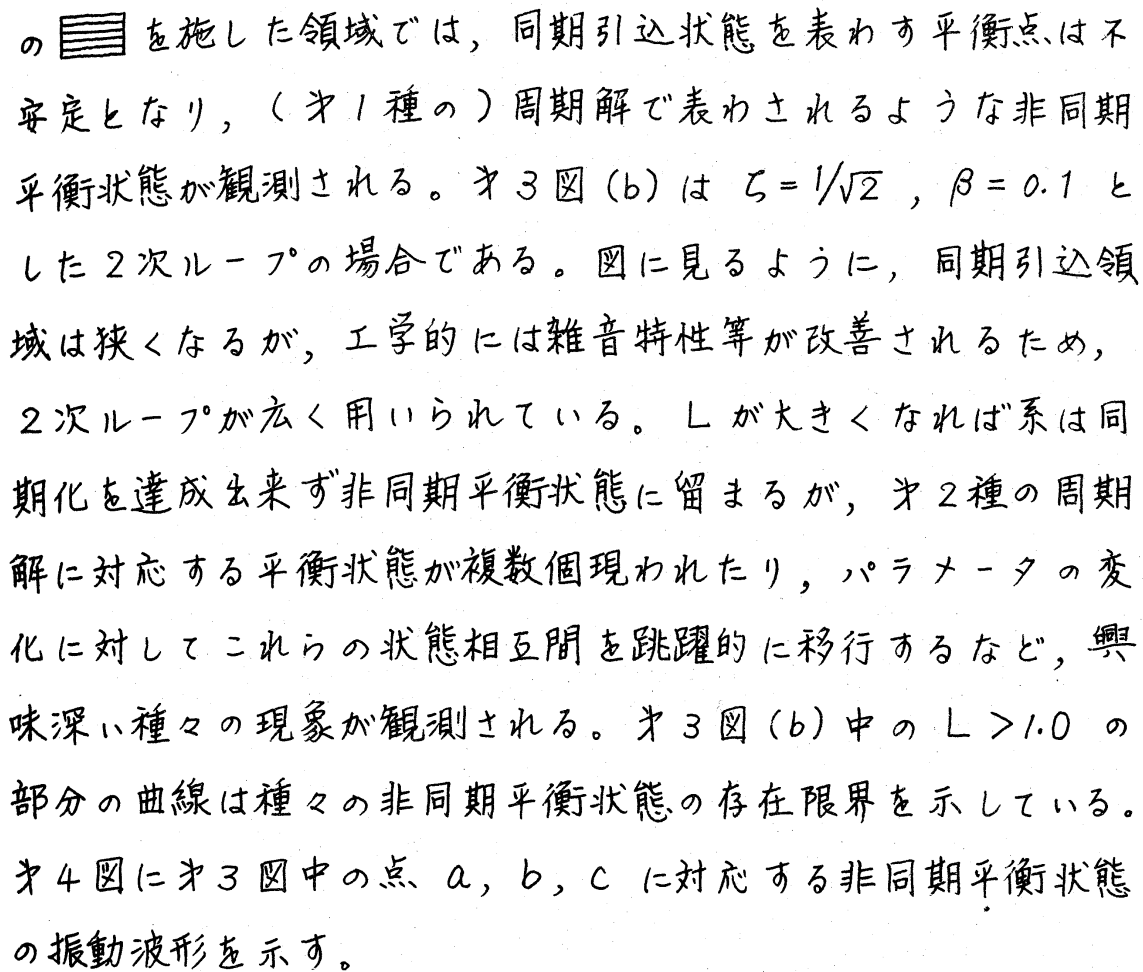 の▤を施した領域では, 同期引込状態を表わす平衡点は不
安定となり, (才1種の)周期解で表わされるような非同期
平衡状態が観測される。才3図(b)は ζ=1/√2 , β=0.1 と
した2次ループの場合である。図に見るように, 同期引込領
域は狭くなるが, 工学的には雑音特性等が改善されるため,
2次ループが広く用いられている。Lが大きくなれば系は同
期化を達成出来ず非同期平衡状態に留まるが, 才2種の周期
解に対応する平衡状態が複数個現われたり, パラメータの変
化に対してこれらの状態相互間を跳躍的に移行するなど, 興
味深い種々の現象が観測される。才3図(b)中のL>1.0の
部分の曲線は種々の非同期平衡状態の存在限界を示している。
才4図に才3図中の点 a, b, c に対応する非同期平衡状態
の振動波形を示す。